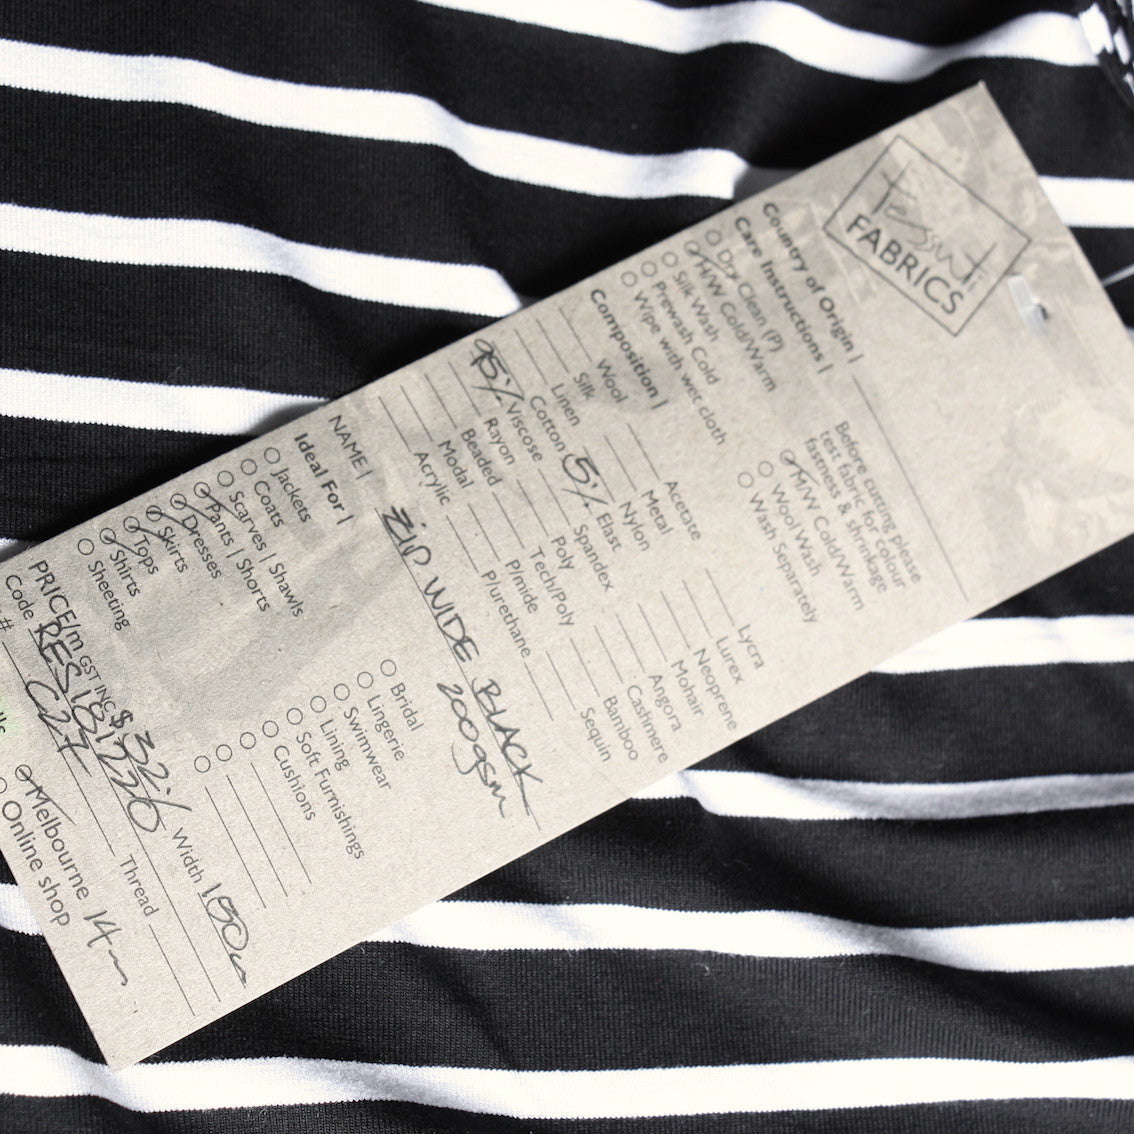 Tessuti
FABRICS
Country of Origin |
Care Instructions |
Dry Clean (P)
H/W Cold/Warm
Silk Wash
Prewash Cold
Wipe with wet cloth
Before cutting please
test fabric for colour
fastness & shrinkage
M/W Cold/Warm
Wool Wash
Wash Separately
Composition |
Wool
Silk
Linen
Cotton
95% Viscose
Rayon
Beaded
Modal
Acrylic
Acetate
Metal
Nylon
5% Elast
Spandex
Poly
Tech/Poly
P/mide
P/urethane
Lycra
Lurex
Neoprene
Mohair
Angora
Cashmere
Bamboo
Sequin
NAME | ZIP WIDE BLACK
200gsm
Ideal For |
Jackets
Coats
Scarves | Shawls
Pants | Shorts
Dresses
Skirts
Tops
Shirts
Sheeting
Bridal
Lingerie
Swimwear
Lining
Soft Furnishings
Cushions
PRICE/m GST INC $32% Width 150c
Code RES181220
# C24 Thread
Melbourne 14m
Online shop